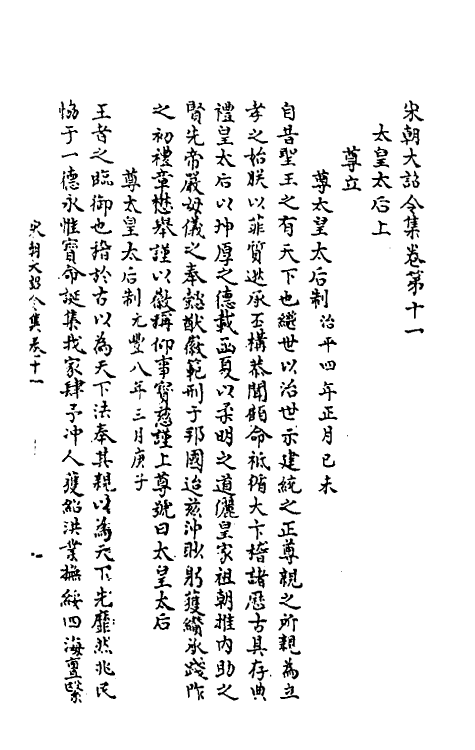 宋朝大詔令集卷第十一
太皇太后上
尊立
尊太皇太后制治平四年正月己未
自昔聖王之有天下也繼世以治世示建統之正尊親之所親為立
孝之始朕以菲質逖承丕構恭聞顧命祗循大卞稽諸歷古具存典
禮皇太后以坤厚之德載函夏以柔明之道儷皇家祖朝推內助之
賢先帝嚴母儀之奉懿猷徽範刑于邦國迨茲沖眇躬獲纘承踐阼
之初禮章懋舉謹以徽稱仰事寶慈謹上尊號曰太皇太后
尊太皇太后制元豐八年三月庚子
王者之臨御也稽於古以為天下法奉其親以為天下先靡然兆民
恊于一德永惟寶命誕集我家肆予沖人獲紹洪業撫綏四海亶繄
宋朝大詔令集卷十一
一